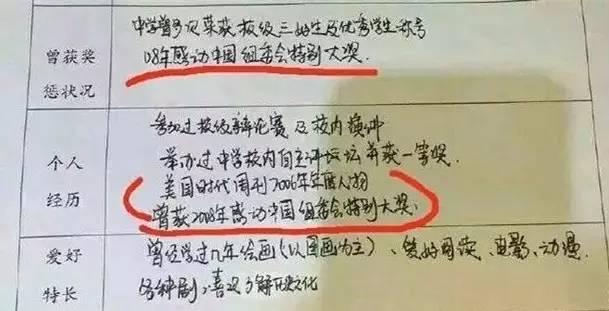 中学曾多次荣获校级三好生及优秀学生称号
曾获奖
08年感动中国组委会特别大奖.
惩状况
参加过校级辩论赛及校内演讲
个人
举办过中学校内自主评坛并获一等奖.
美国时代周刊2006年年度人物
经历
曾获2008年感动中国组委会特别大奖.
爱好
曾经学过几年绘画(以国画为主)、爱好阅读、电影、动漫.
特长
各种剧,喜欢了解历史文化